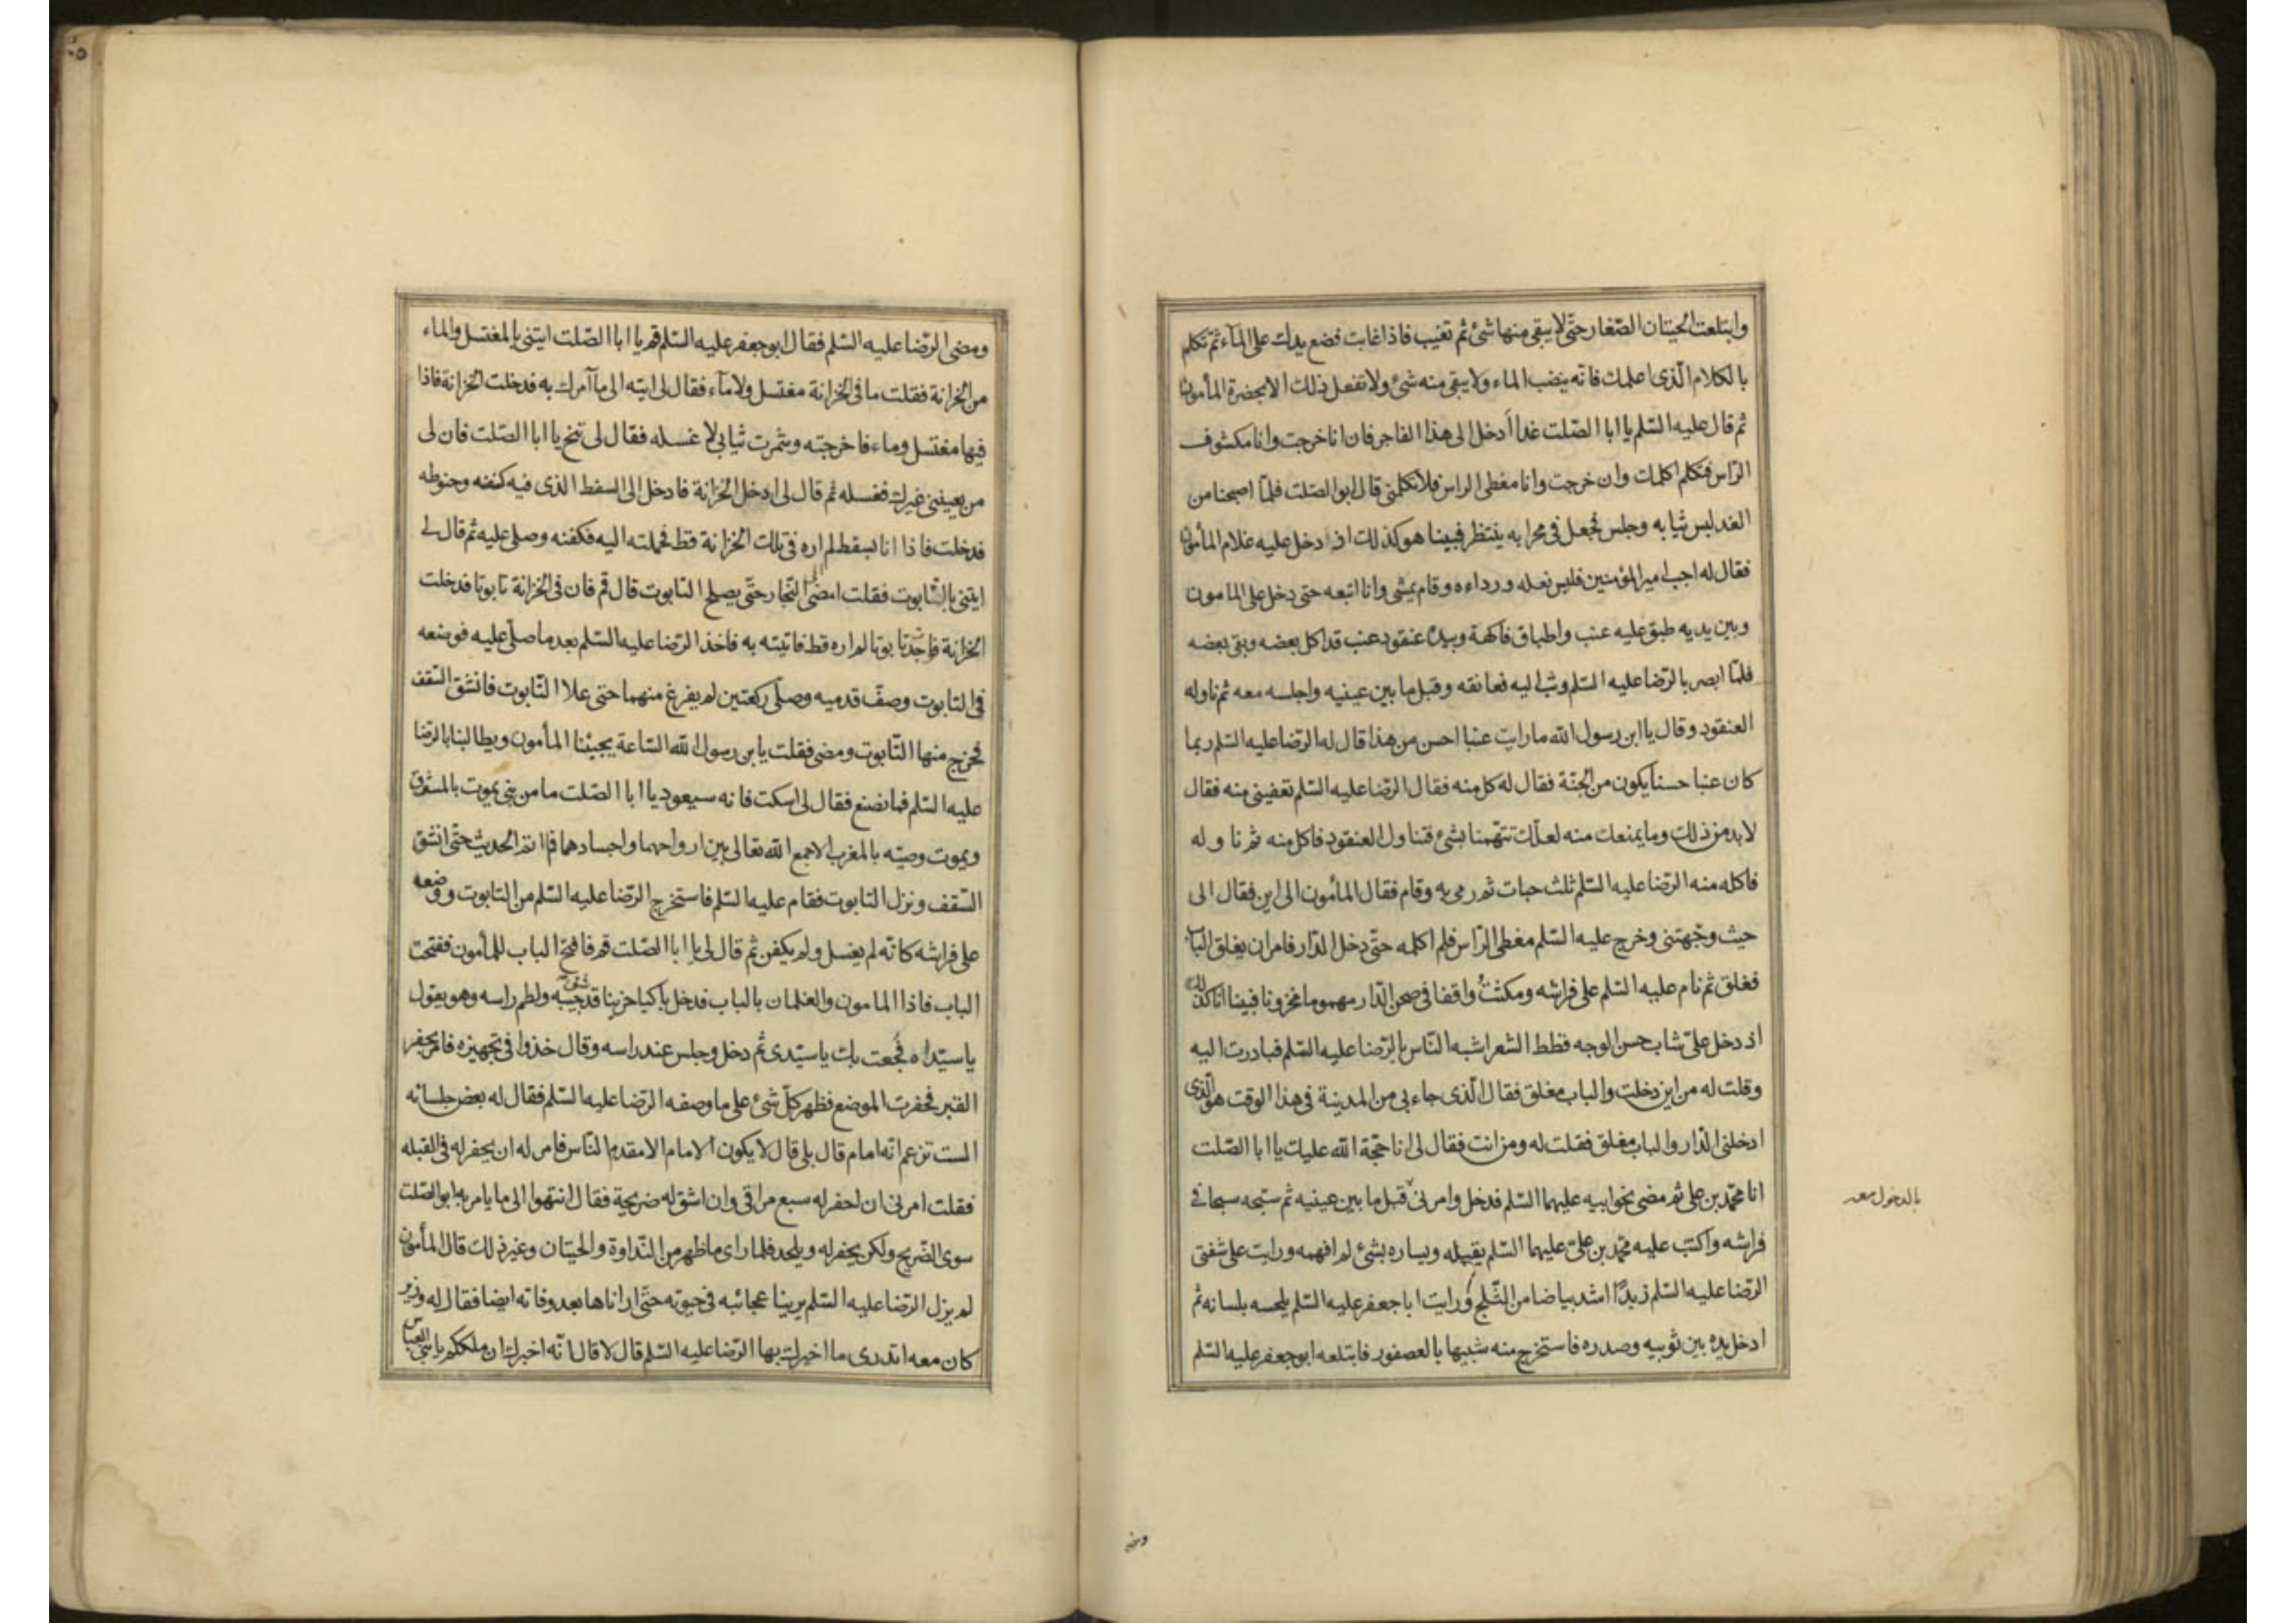 وابتلعت الحيتان الصّغار حتّى لا يبقى منها شئ ثم تغيب فاذا غابت فضع يدك على المآء ثم تكلم
بالكلام الّذى اعلمك فانّه ينضب الماء ولا يبقى منه شئ ولا تفعل ذلك الا بحضرة المأمون
ثم قال عليه السّلم يا ابا الصّلت غدا أدخل الى هذا الفاجر فان انا خرجت وانا مكشوف
الرّاس فتكلم اكلمك وان خرجت وانا مغطى الراس فلا تكلمنى قال ابو الصّلت فلمّا اصبحنا من
الغد لبس ثيابه وجلس فجعل فى محرابه ينتظر فبينا هو كذلك اذ دخل عليه غلام المأمون
فقال له اجب امير المؤمنين فلبس نعله ورداءه وقام يمشى وانا اتبعه حتى دخل على المامون
وبين يديه طبق عليه عنب واطباق فاكهة وبيده عنقود عنب قد اكل بعضه وبقى بعضه
فلمّا ابصر بالرّضا عليه السّلم وثب اليه فعانقه وقبل ما بين عينيه واجلسه معه ثم ناوله
العنقود وقال يا ابن رسول الله ما رايت عنبا احسن من هذا قال له الرّضا عليه السّلم ربما
كان عنبا حسنا يكون من الجنّة فقال له كل منه فقال الرّضا عليه السّلم تعفينى منه فقال
لا بد من ذلك وما يمنعك منه لعلّك تتّهمنا بشئ فتناول العنقود فاكل منه ثم ناوله
فاكله منه الرّضا عليه السّلم ثلث حبات ثم رمى به وقام فقال المأمون الى اين فقال الى
حيث وجّهتنى وخرج عليه السّلم مغطى الرّاس فلم اكلمه حتّى دخل الدّار فامر ان يغلق الباب
فغلق ثم نام عليه السّلم على فراشه ومكثتُ واقفا فى صحن الدّار مهموما محزونا فبينا انا كذلك
اذ دخل علىّ شاب حسن الوجه قطط الشعر اشبه النّاس بالرّضا عليه السّلم فبادرت اليه
وقلت له من اين دخلت والباب مغلق فقال الّذى جاء بى من المدينة فى هذا الوقت هو الّذى
ادخلنى الدّار والباب مغلق فقلت له ومن انت فقال لى انا حجّة الله عليك يا ابا الصّلت
انا محمّد بن على ثم مضى نحو ابيه عليهما السّلم فدخل وامرنى قبل ما بين عينيه ثم سحبه سحبا فى
بالدخول معه
فراشه واكبّ عليه محمّد بن علىّ عليهما السّلم يقبله ويساره بشئ لم افهمه ورايت على شفتى
الرّضا عليه السّلم زبدًا اشد بياضا من الثّلج ورايت ابا جعفر عليه السّلم يلحسه بلسانه ثم
ادخل يده بين ثوبيه وصدره فاستخرج منه شبيها بالعصفور فابتلعه ابو جعفر عليه السّلم
ومضى
ومضى الرّضا عليه السّلم فقال ابو جعفر عليه السّلم قم يا ابا الصّلت ايتنى بالمغتسل والماء
من الخزانة فقلت ما فى الخزانة مغتسل ولا مآء فقال لى ايته الى مآ آمرك به فدخلت الخزانة فاذا
فيها مغتسل وماء فاخرجته وشمرت ثيابى لاغسله فقال لى تنح يا ابا الصّلت فان لى
من يعيننى غيرك فغسله ثم قال لى ادخل الخزانة فادخل الى السفط الذى فيه كفنه وحنوطه
فدخلت فاذا انا بسفط لم اره فى تلك الخزانة قط فحملته اليه فكفنه وصلى عليه ثم قال لى
ايتنى بالتّابوت فقلت امضى الى النّجار حتّى يصلح التابوت قال قم فان فى الخزانة تابوتا فدخلت
الخزانة فوجدت تابوتا لم اره قط فاتيته به فاخذ الرّضا عليه السّلم بعد ما صلّى عليه فوضعه
فى التابوت وصفّ قدميه وصلّى ركعتين لم يفرغ منهما حتى علا التّابوت فانشق السّقف
فخرج منها التّابوت ومضى فقلت يا بن رسول الله السّاعة يجيئنا المأمون ويطالبنا بالرّضا
عليه السّلم فما نصنع فقال لى اسكت فانه سيعود يا ابا الصّلت ما من نبى يموت بالمشرق
ويموت وصيّه بالمغرب الا جمع الله تعالى بين ارواحهما واجسادهما فما اتم الحديث حتّى انشق
السّقف ونزل التابوت فقام عليه السّلم فاستخرج الرّضا عليه السّلم من التابوت ووضعه
على فراشه كانّه لم يغسل ولم يكفن ثم قال لى يا ابا الصّلت قم فافتح الباب للمأمون ففتحت
الباب فاذا المامون والغلمان بالباب فدخل باكيا حزينا قد شق جيبه ولطم راسه وهو يقول
يا سيّداه فُجعت بك يا سيّدى ثم دخل وجلس عند راسه وقال خذوا فى تجهيزه فامر بحفر
القبر فحفرت الموضع فظهر كلّ شئ على ما وصفه الرّضا عليه السّلم فقال له بعض جلسائه
الست تزعم انّه امام قال بلى قال لا يكون الامام الا مقدم النّاس فامر له ان يحفر له فى القبله
فقلت امرنى ان احفر له سبع مراقى وان اشق له ضريحة فقال انتهوا الى ما يامر به ابو الصّلت
سوى الضّريح ولكن يحفر له ويلحد فلما راى ما ظهر من النّداوة والحيتان وغير ذلك قال المأمون
لم يزل الرّضا عليه السّلم يرينا عجائبه فى حيوته حتّى اراناها بعد وفاته ايضا فقال له وزير
كان معه اتدرى ما اخبرك بها الرّضا عليه السّلم قال لا قال انّه اخبرك ان ملككم يا بنى العباس